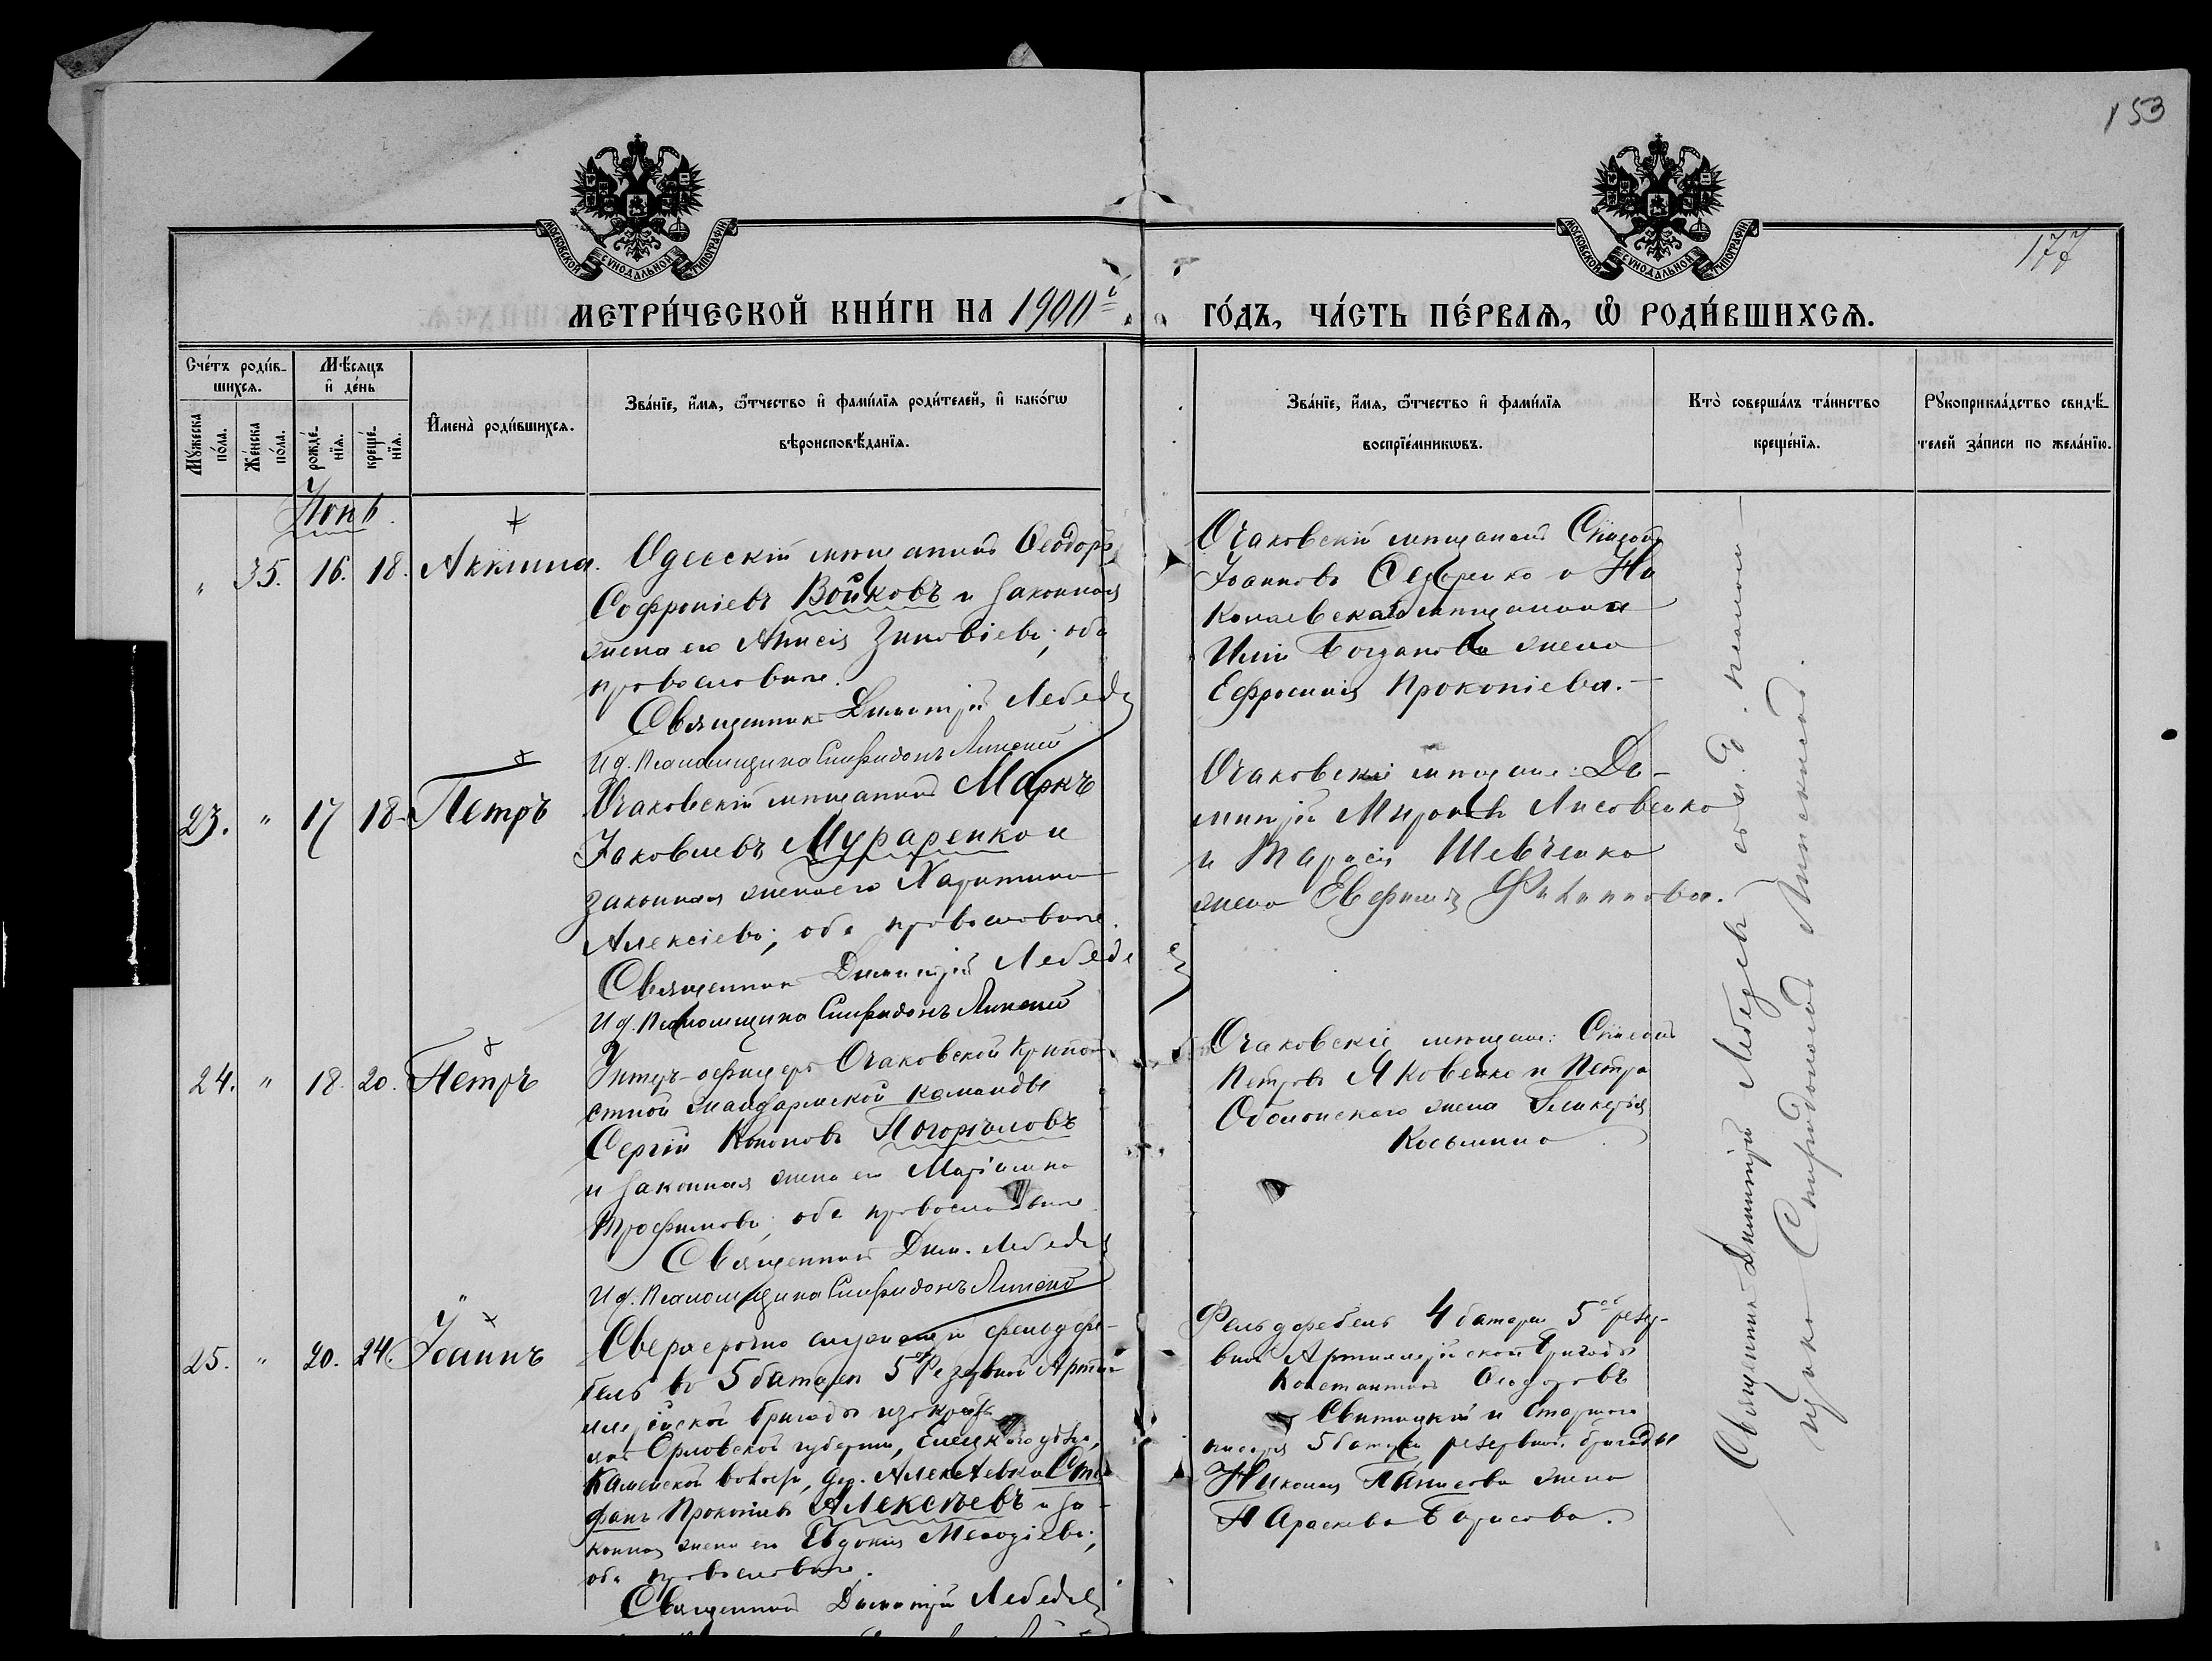 153
МОСКОВСКОЙ СѴНОДАЛЬНОЙ ТИПОГРАФІИ
МОСКОВСКОЙ СѴНОДАЛЬНОЙ ТИПОГРАФІИ
177
МЕТРИ́ЧЕСКОЙ КНИ́ГИ НА 1900й
ГО́ДЪ, ЧА́СТЬ ПЕ́РВАѦ, Ѡ҆ РОДИ́ВШИХСѦ.
Сче́тъ роди́в-
шихсѧ.
Мꙋжеска по́ла.
Же́нска по́ла.
Мѣ́сѧцъ
и҆ де́нь
рожде́-
нїѧ.
креще́-
нїѧ.
И҆мена̀ роди́вшихсѧ.
Зва́нїе, и҆́мѧ, ѻ҆́тчество и҆ фами́лїѧ роди́телей, и҆ како́гѡ
вѣроисповѣ́данїѧ.
Зва́нїе, и҆́мѧ, ѻ҆́тчество и҆ фами́лїѧ
воспрїе́мникѡвъ.
Кто̀ соверша́лъ та́инство
креще́нїѧ.
Рꙋкоприкла́дство свидѣ́-
телей за́писи по жела́нїю.
Іюнь.
" 35. 16. 18. Акилина.
Одесскій мѣщанинъ Ѳеодоръ
Софроніевъ Войковъ и законная
жена его Анисія Зиновіева; оба
православные.
Священникъ Димитрій Лебедевъ
И д. Псаломщика Спиридонъ Липскій
Очаковскій мѣщанинъ
Іоанновъ и Ни
колаевская мѣщанина
Богданова жена
Евфросинія Прокопіева.
23. " 17 18. Петръ
Очаковскій мѣщанинъ Маркъ
Іаковлевъ Мураренко и
законная жена его Харитина
Алексіева; оба православные.
Священникъ Димитрій Лебедевъ
И д. Псаломщика Спиридонъ Липскій
Очаковскіе мѣщане: Ди-
митрій Мироновъ Лисовенко
и Тарасія Шевченко
жена Евфимія Филиппова.
24. " 18. 20. Петръ
Унтеръ-офицеръ Очаковской крѣпо-
стной жандармской команды
Сергій Кононовъ Погорѣловъ
и законная жена его Маріамна
Трофимова; оба православные
Священникъ Дим. Лебедевъ
И д. Псаломщика Спиридонъ Липскій
Очаковскіе мѣщане:
Петровъ Яковенко и Петра
Оболонскаго жена Гликерія
Косьмина
25. " 20. 24. Іоаннъ
Сверхсрочно служащій фельдфе-
бель въ 5 батареи 5ой Резервной Артил-
лерійской бригады изъ
Орловской губерніи, Елецкаго уѣзда,
Каменской волости, дер. Алексѣевки Сте-
фанъ Прокопіевъ Алексѣевъ и за-
конная жена его Евдокія Меѳодіева;
оба православные.
Священникъ Димитрій Лебедевъ
Фельдфебель 4 батареи 5ой резер-
вной Артиллерійской бригады
Константинъ Ѳеодоровъ
Свитицкій и старшаго
писаря 5 батареи резервной бригады
Николая жена
Параскева Борисова.
Священникъ Димитрій Лебедевъ съ и. д. псалом-
щика Спиридономъ Липскимъ.